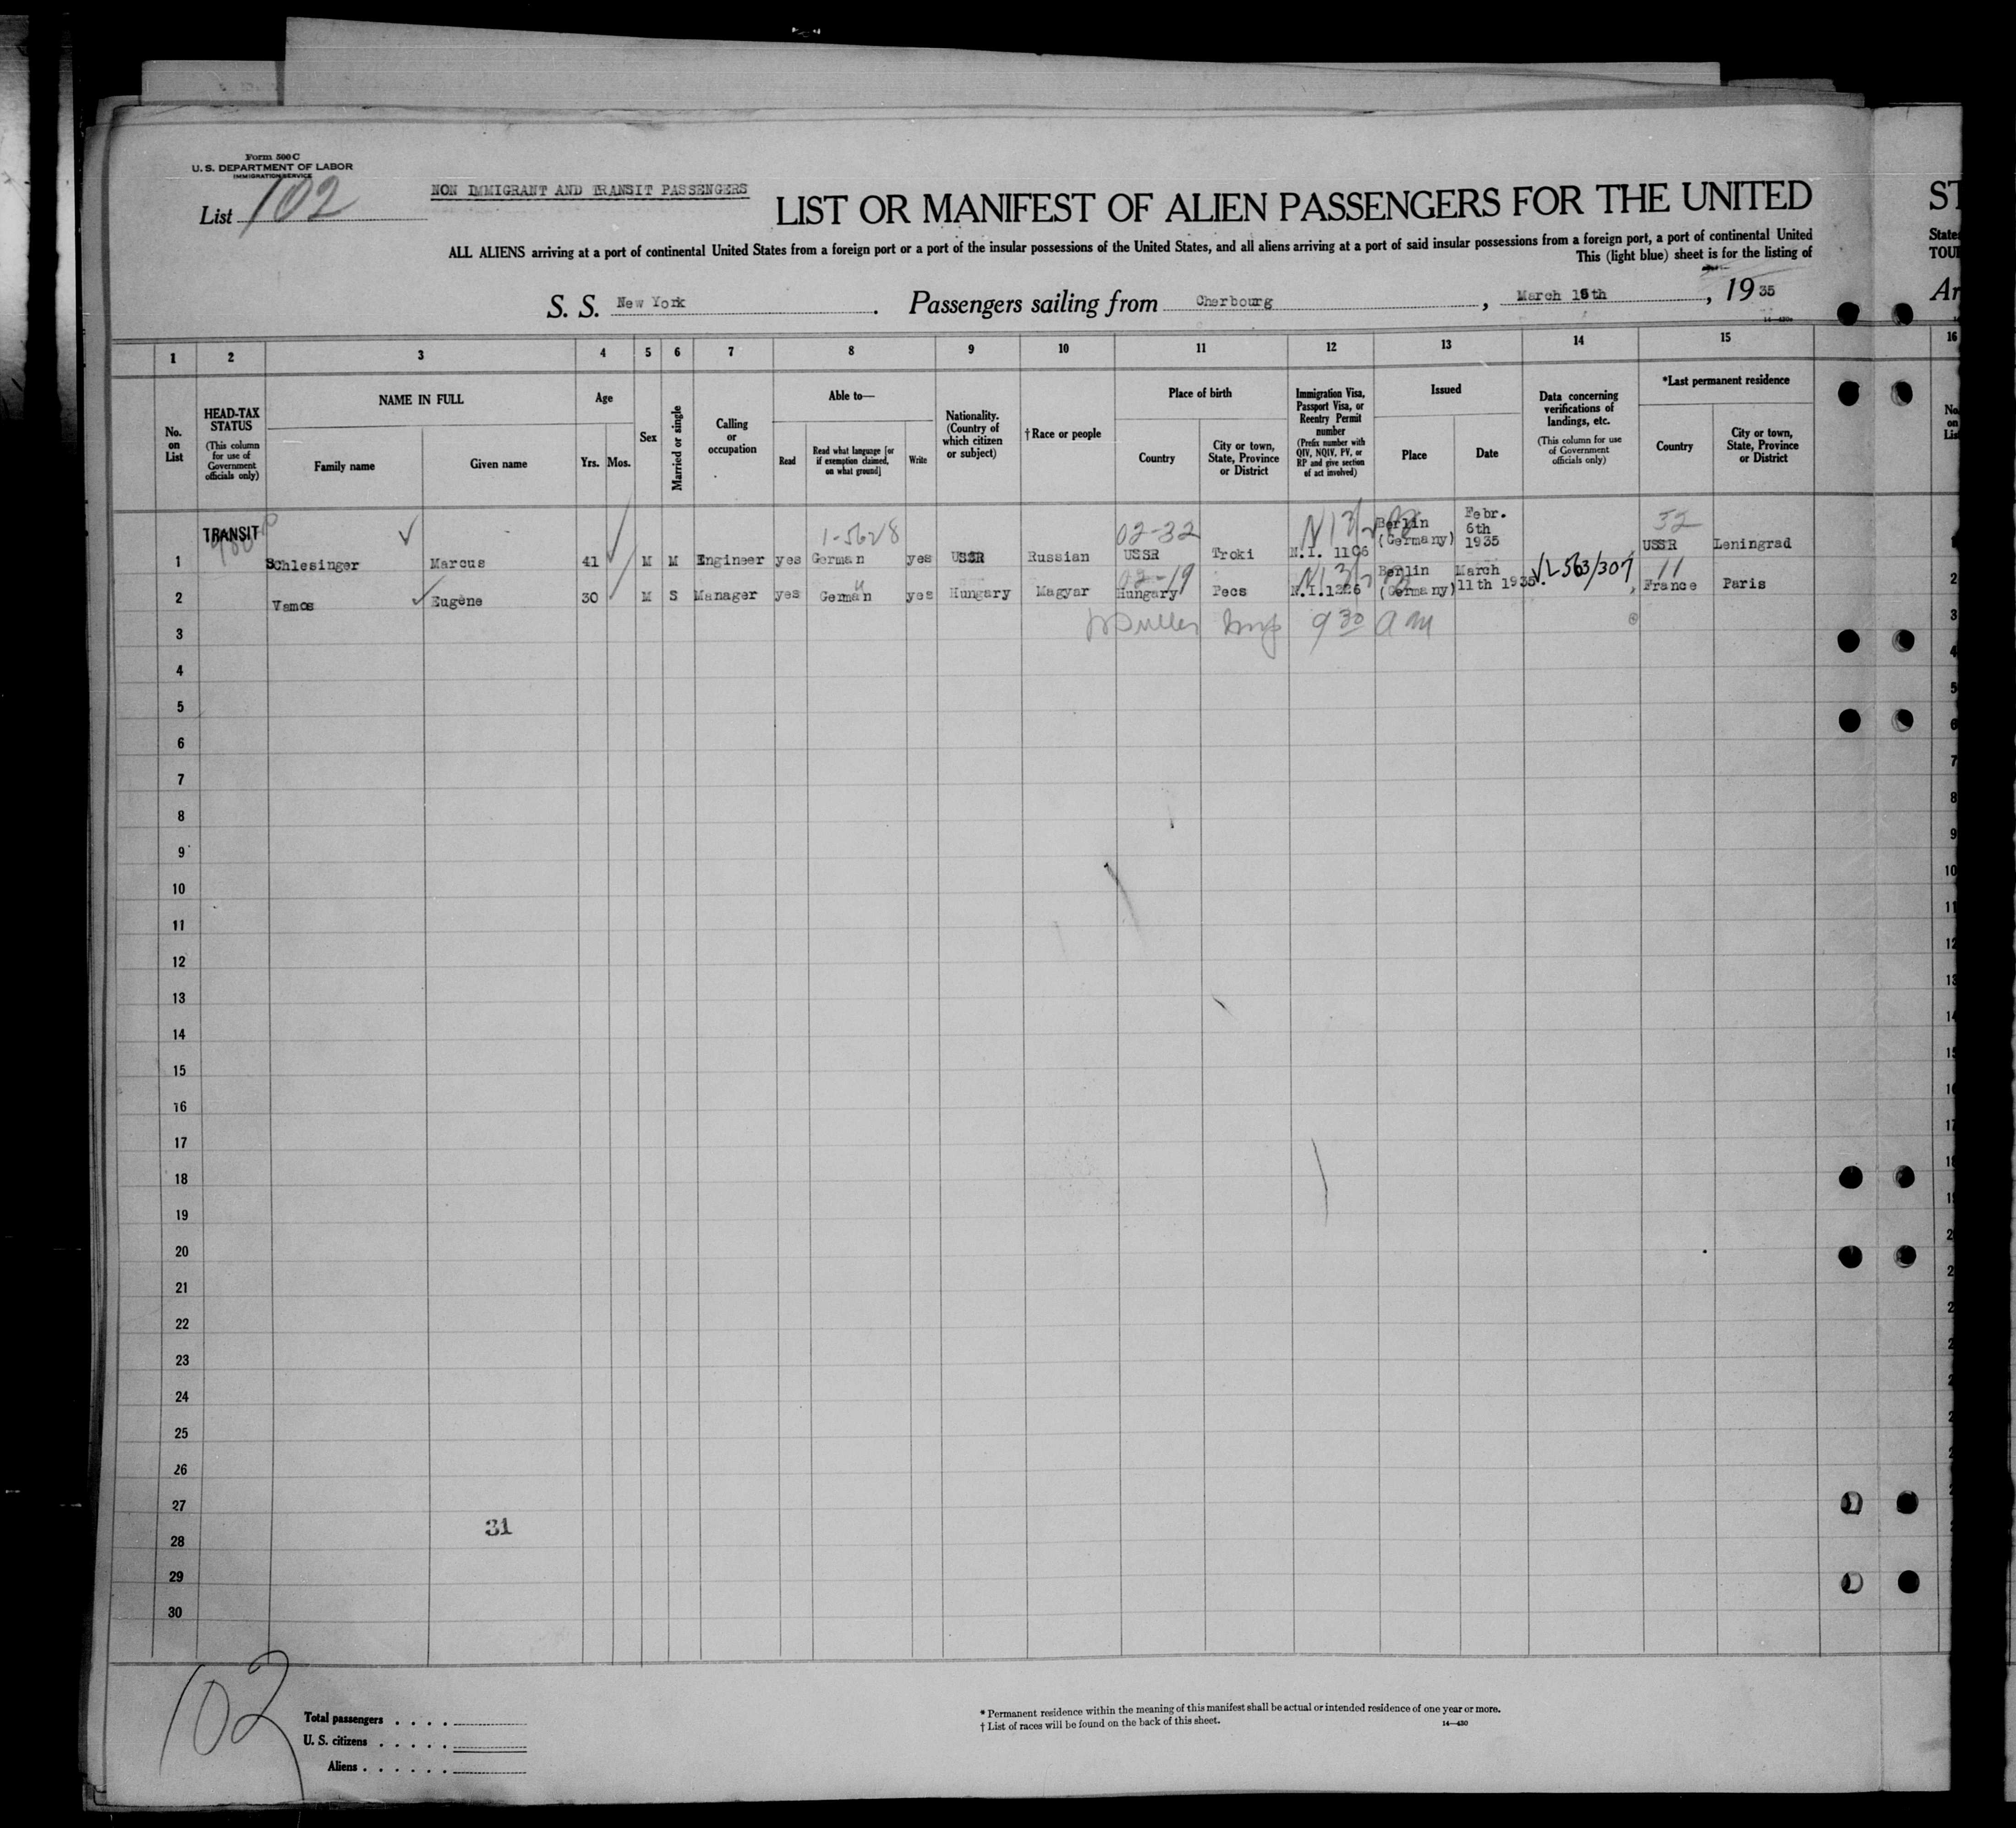 Form 500 C
U. S. DEPARTMENT OF LABOR
IMMIGRATION SERVICE
List 102
NON IMMIGRANT AND TRANSIT PASSENGERS
LIST OR MANIFEST OF ALIEN PASSENGERS FOR THE UNITED
ST
ALL ALIENS arriving at a port of continental United States from a foreign port or a port of the insular possessions of the United States, and all aliens arriving at a port of said insular possessions from a foreign port, a port of continental United
This (light blue) sheet is for the listing of
S. S. New York. Passengers sailing from Cherbourg, March 15th, 19 35
1 2 3 4 5 6 7 8 9 10 11 12 13 14 15 16
No. on List
HEAD-TAX STATUS
(This column for use of Government officials only)
NAME IN FULL
Family name
Given name
Age
Yrs. Mos.
Sex
Married or single
Calling or occupation
Able to—
Read
Read what language [or if exemption claimed, on what ground]
Write
Nationality. (Country of which citizen or subject)
† Race or people
Place of birth
Country
City or town, State, Province or District
Immigration Visa, Passport Visa, or Reentry Permit number
(Prefix number with QIV, NQIV, PV, or RP and give section of act involved)
Issued
Place
Date
Data concerning verifications of landings, etc.
(This column for use of Government officials only)
*Last permanent residence
Country
City or town, State, Province or District
TRANSIT
1-5628
02-32
32
1 Schlesinger Marcus 41 M M Engineer yes German yes USSR Russian USSR Troki N.I. 1106 Berlin (Germany) Febr. 6th 1935 USSR Leningrad
02-19
11
2 Vamos Eugene 30 M S Manager yes German yes Hungary Magyar Hungary Pecs N.I.1326 Berlin (Germany) March 11th 1935. VL 563/307 France Paris
3 9 30 AM
4
5
6
7
8
9
10
11
12
13
14
15
16
17
18
19
20
21
22
23
24
25
26
27
31
28
29
30
102
Total passengers . . . .
U. S. citizens . . . . .
Aliens . . . . . .
* Permanent residence within the meaning of this manifest shall be actual or intended residence of one year or more.
† List of races will be found on the back of this sheet.
14—430